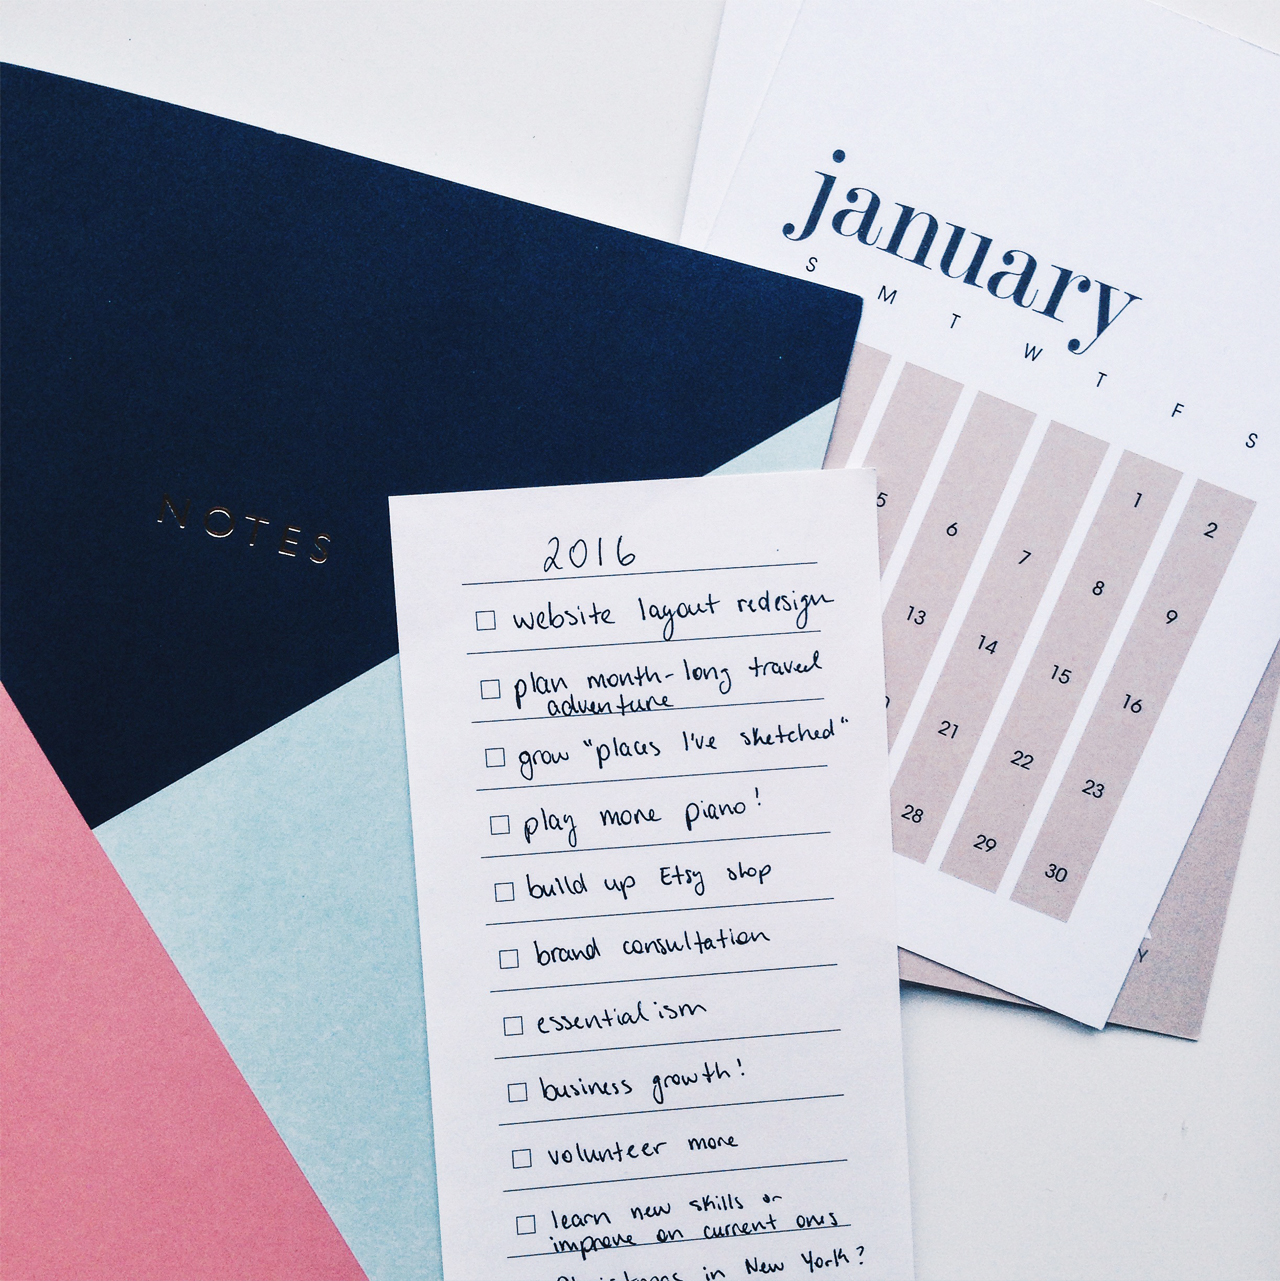 january
S M T W T F S
1 2
5 6 7 8 9
13 14 15 16
21 22 23
28 29 30
Y
NOTES
2016
website layout redesign
plan month-long travel
adventure
grow "places I've sketched"
play more piano!
build up Etsy shop
brand consultation
essentialism
business growth!
volunteer more
learn new skills or
improve on current ones
Christmas in New York?